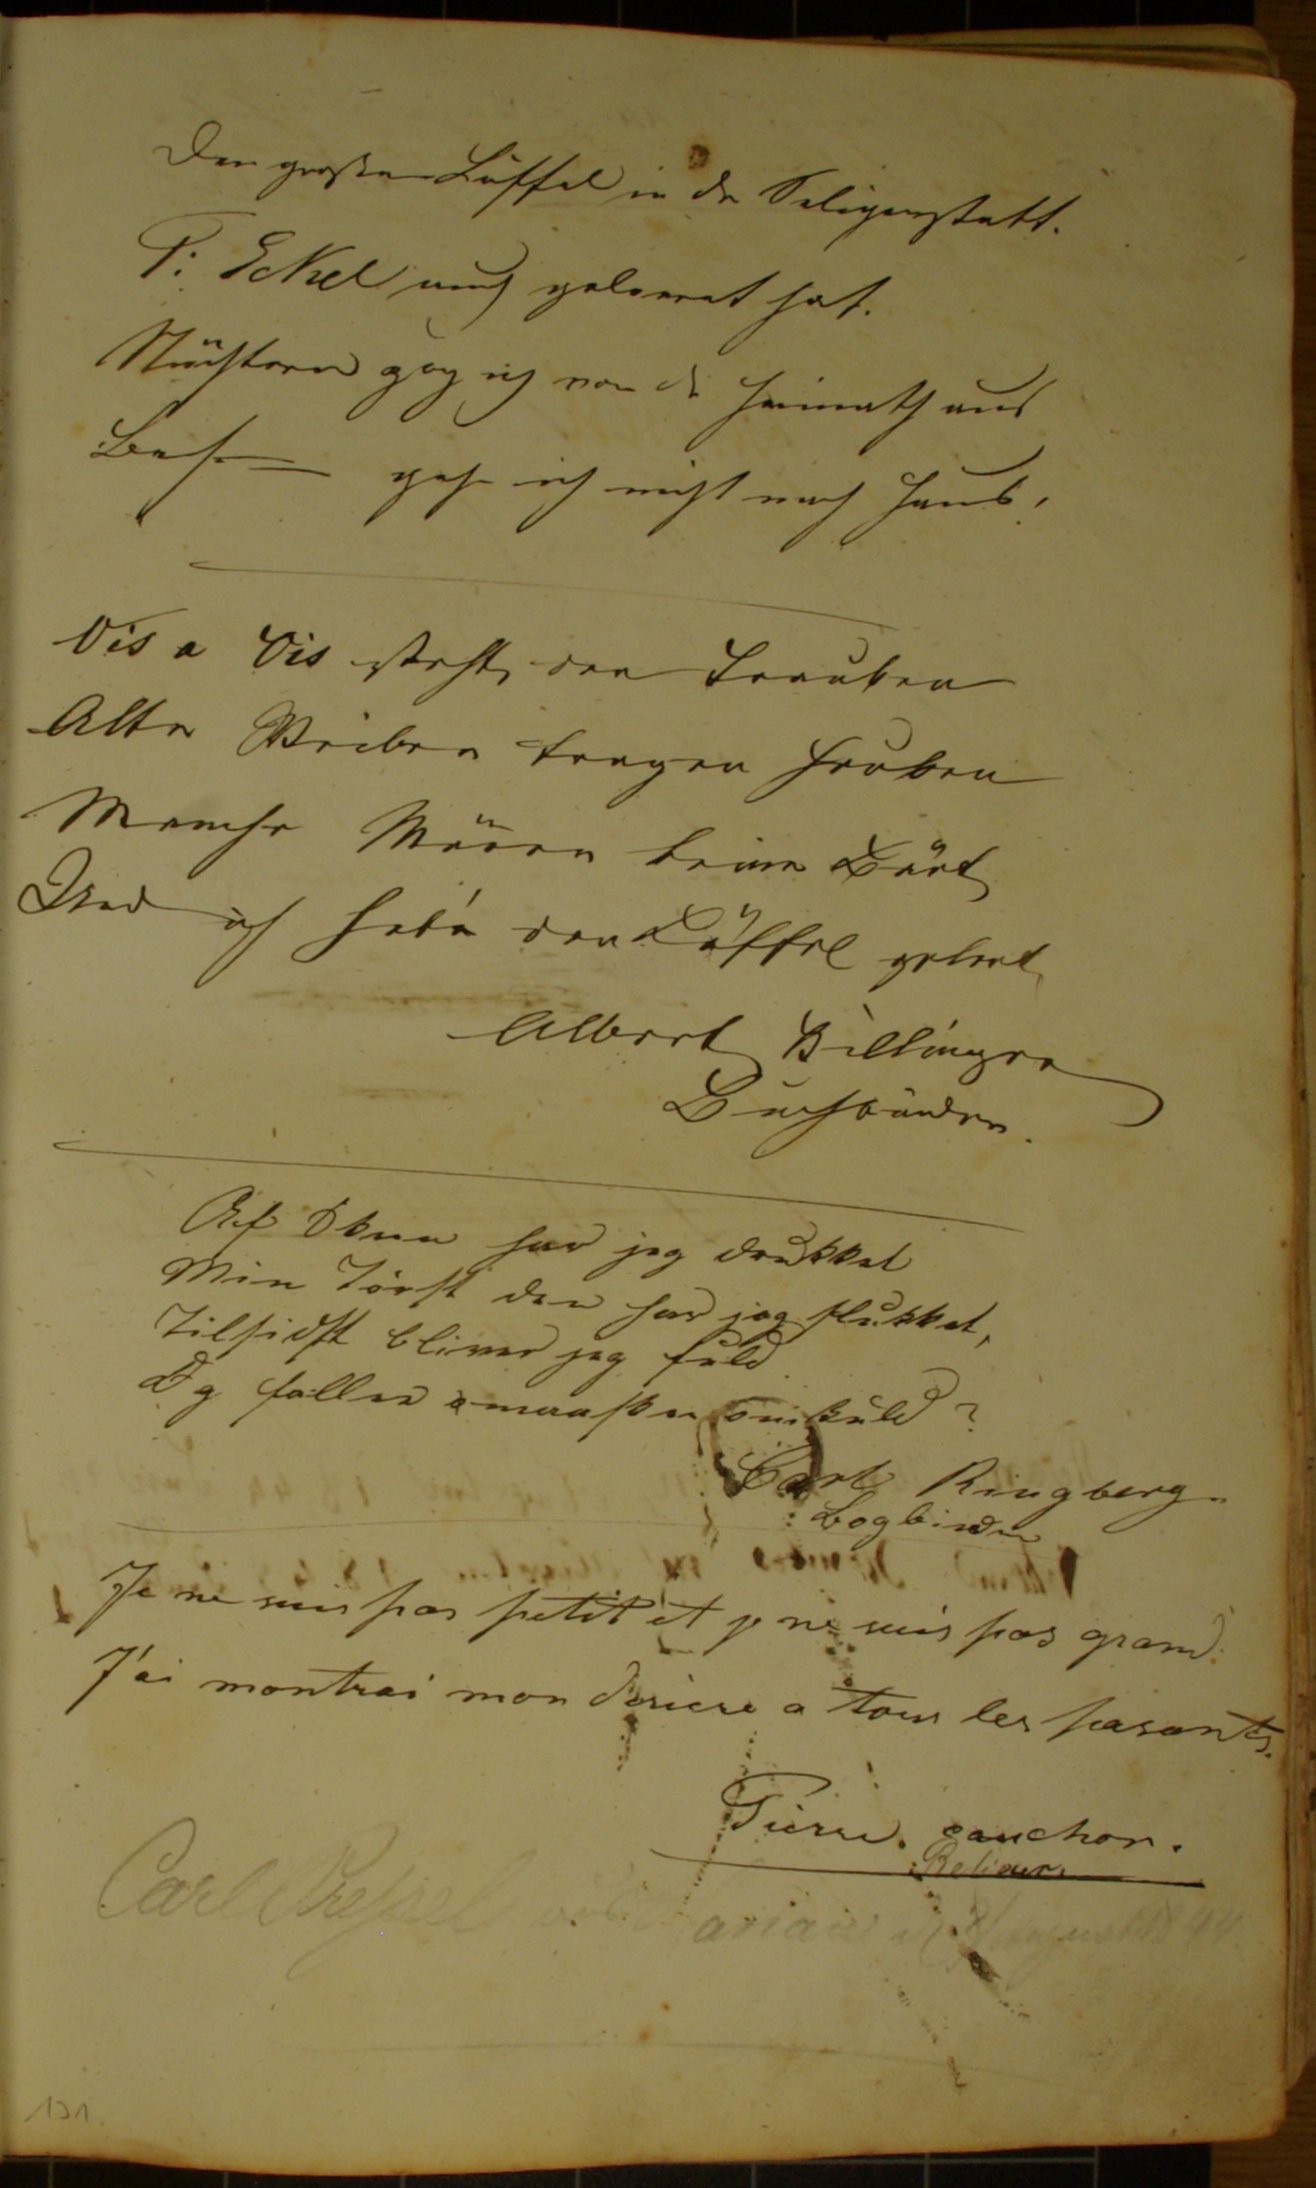 Den großen Löffel in der Seligenstatt.
P: Eckel auch geleeret hat.
Nüchtern zog ich von der Heimath aus
gehe ich nicht nach Haus.
Vis a Vis steht der Trauben
Alte Weiber tragen Hauben
Manche Männer keinen Bart
Und ich habe den Löffel geleert
Albert Billinger
Buchbinder.
Af Skeen har jeg drukket
Min Törst den har jeg slukket,
Tilsidst bliver jeg fuld
Og falder maaskee omkuld?
Carl Ringberg.
Bogbinder
Je ne suis pas petit et je ne suis pas grand.
J'ai montrai mon deriere a tous les pasants.
Pierre. cauchon.
Relieur.
Carl
August 1844
131.